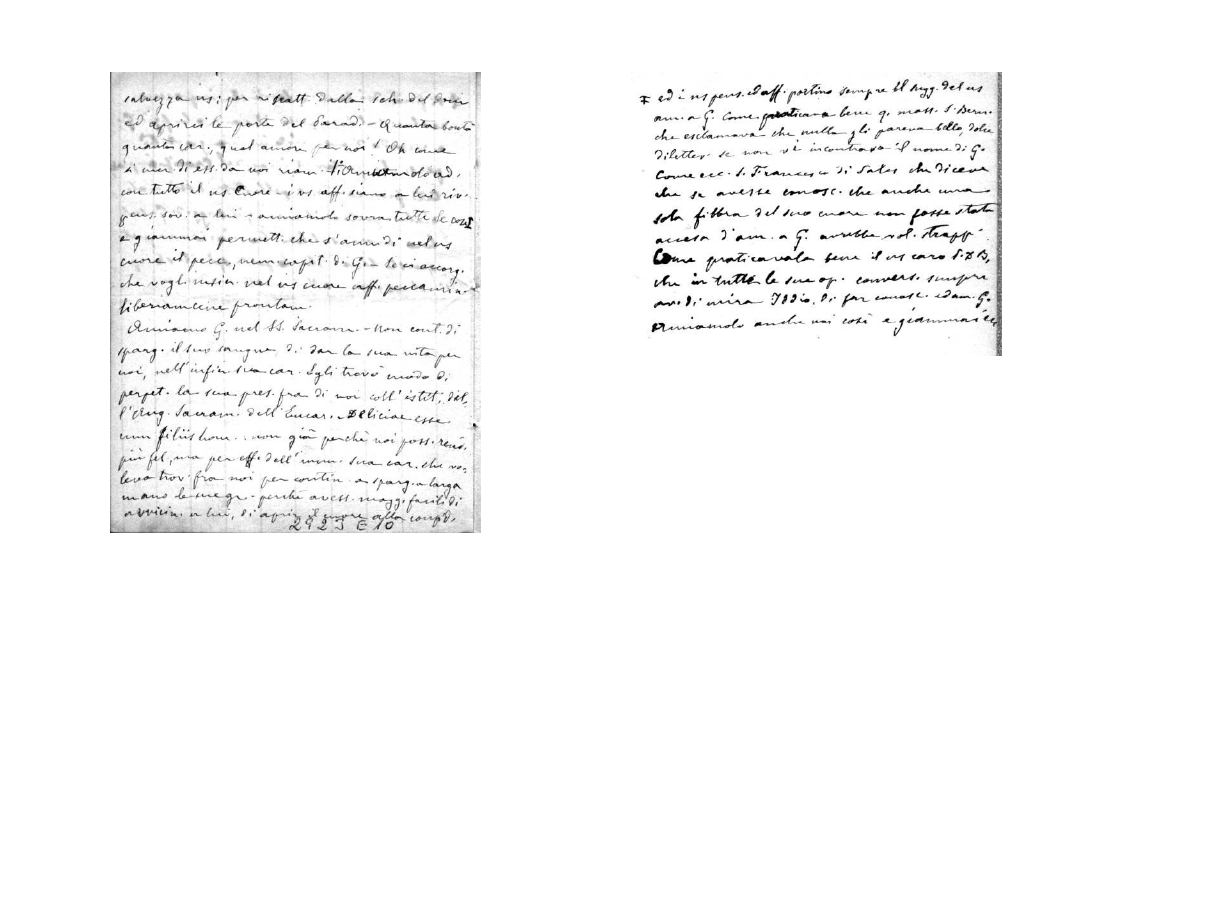 salvezza ns; per riscatt. dalla sch. del dem.
ed aprirci le porte del Parad. - Quanta bontà
quanta car., qual amore per noi! Oh come
si mer. di ess. da noi riam. Amiamolo ad.
con tutto il ns Cuore - i ns aff. siano a lui riv.
pens. sov. a lui - amiamolo sovra tutte le cose
e giammai permett. che s'anni di nel ns
cuore il pecc., nem. capit. di G. - Se ci accorg.
che vogli insin. nel ns cuore aff. peccamin.
liberiamcine prontam.
Amiamo G. nel SS. Sacram. - Non cont. di
sparg. il suo sangue, di dar la sua vita per
noi, nell'infin. sua car. Egli trovò modo di
perpet. la sua pres. fra di noi coll'istit. del-
l'Aug. Sacram. dell'Eucar. - Deliciae esse
cum filiis hom. . non già perchè noi poss. rend.
più fel., ma per eff. dell'imm. sua car. che vo-
leva trov. fra noi per contin. a sparg. a larga
mano le sue gr. - perchè avess. magg. facil. di
avvicin. a lui, di aprir. il cuore alla confid.
2923 E 10
ed i ns pens. ed aff. portino sempre il sugg. del ns
am. a G. Come praticava bene q. mass. S. Bern.
che esclamava che nulla gli pareva bello, dolce
dilettev. se non vi incontrava il nome di G.
Come ecc. S. Francesco di Sales che diceva
che se avesse conosc. che anche una
sola fibra del suo cuore non fosse stata
accesa d'am. a G. avrebbe vol. strapp.
Come praticavala bene il ns caro D. B,
che in tutte le sue op. convers. sempre
avé di mira Iddio, di far conosc. ed am. G.
Amiamolo anche noi così e giammai ecc